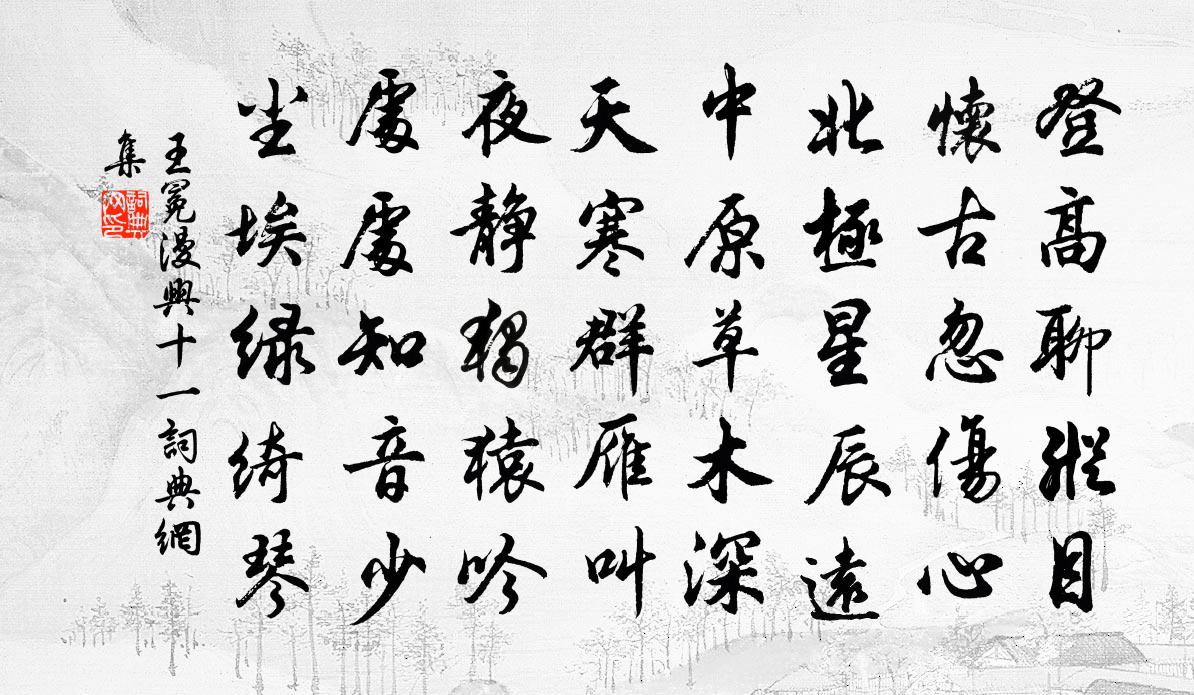 登高聊縱目
懷古忽傷心
北極星辰遠
中原草木深
天寒群雁叫
夜靜獨猿吟
處處知音少
尘埃绿綺琴
王冕漫興十一詞典網
集
詞典網印